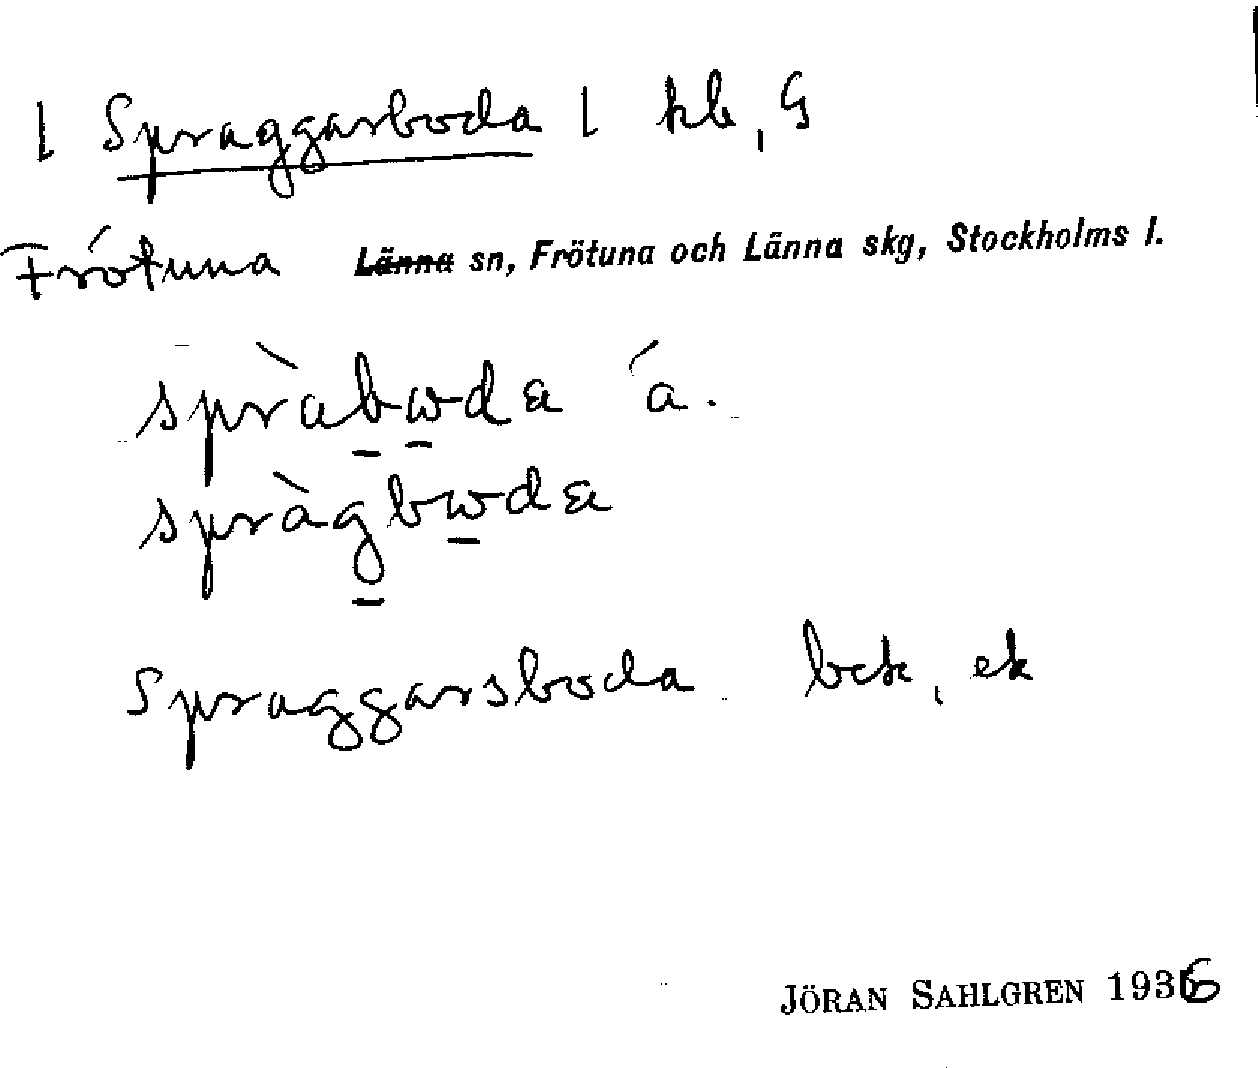 [ Spraggarboda ] kb, G
Frötuna Länna sn, Frötuna och Länna skg, Stockholms l.
spràbωda á.
spràgbωda
Spraggarsboda bck, ek
JÖRAN SAHLGREN 1936